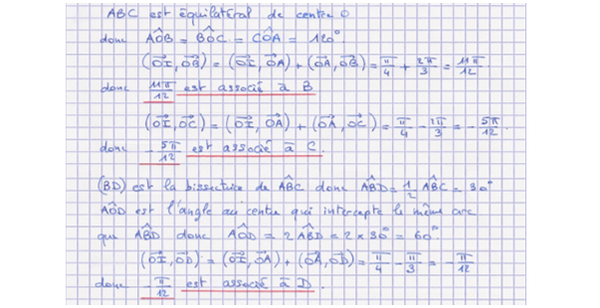 ABC est équilatéral de centre O
donc AÔB = BÔC = CÔA = 120°
(OI⃗, OB⃗) = (OI⃗, OA⃗) + (OA⃗, OB⃗) = π/4 + 2π/3 = 11π/12
donc 11π/12 est associé à B
(OI⃗, OC⃗) = (OI⃗, OA⃗) + (OA⃗, OC⃗) = π/4 - 2π/3 = - 5π/12.
donc - 5π/12 est associé à C.
(BD) est la bissectrice de ABĈ donc ABD̂ = 1/2 ABĈ = 30°
AÔD est l'angle au centre qui intercepte le même arc
que ABD̂ donc AÔD = 2 ABD̂ = 2 × 30° = 60°.
(OI⃗, OD⃗) = (OI⃗, OA⃗) + (OA⃗, OD⃗) = π/4 - π/3 = - π/12
donc - π/12 est associé à D.